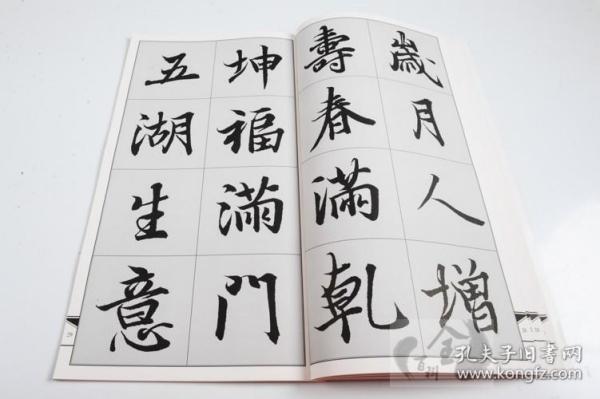 歲月人增
壽春滿乾
坤福滿門
五湖生意
孔夫子旧书网
www.kongfz.com